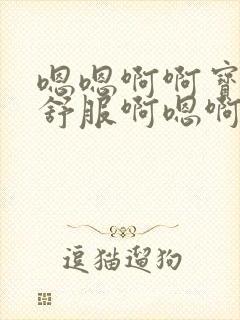 嗯嗯啊啊宝
舒服啊嗯啊
逗猫遛狗